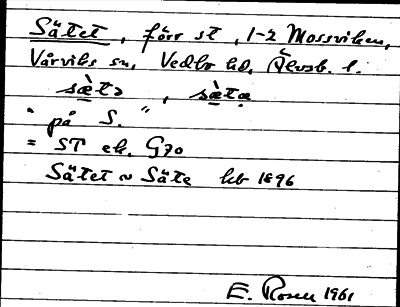 Sätet, förr st, 1-2 Mossviken,
Vårviks sn, Vedbo hd, Älvsb. l.
sæ̀tə, sæ̀ta
" på S. "
= ST ek. G70
Sätet ~ Säte hb 1896
E. Rosen 1961